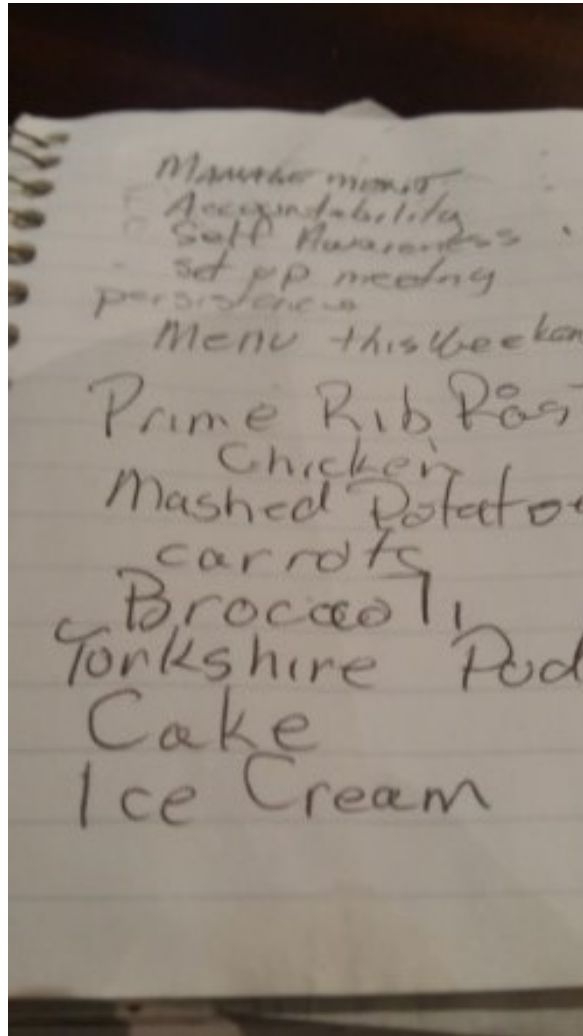 Accountability
Self Awareness
set up meeting
Menu this Weeken
Prime Rib Roas
Chicken
Mashed Potatoe
carrots
Broccoli
Yorkshire Pud
Cake
Ice Cream